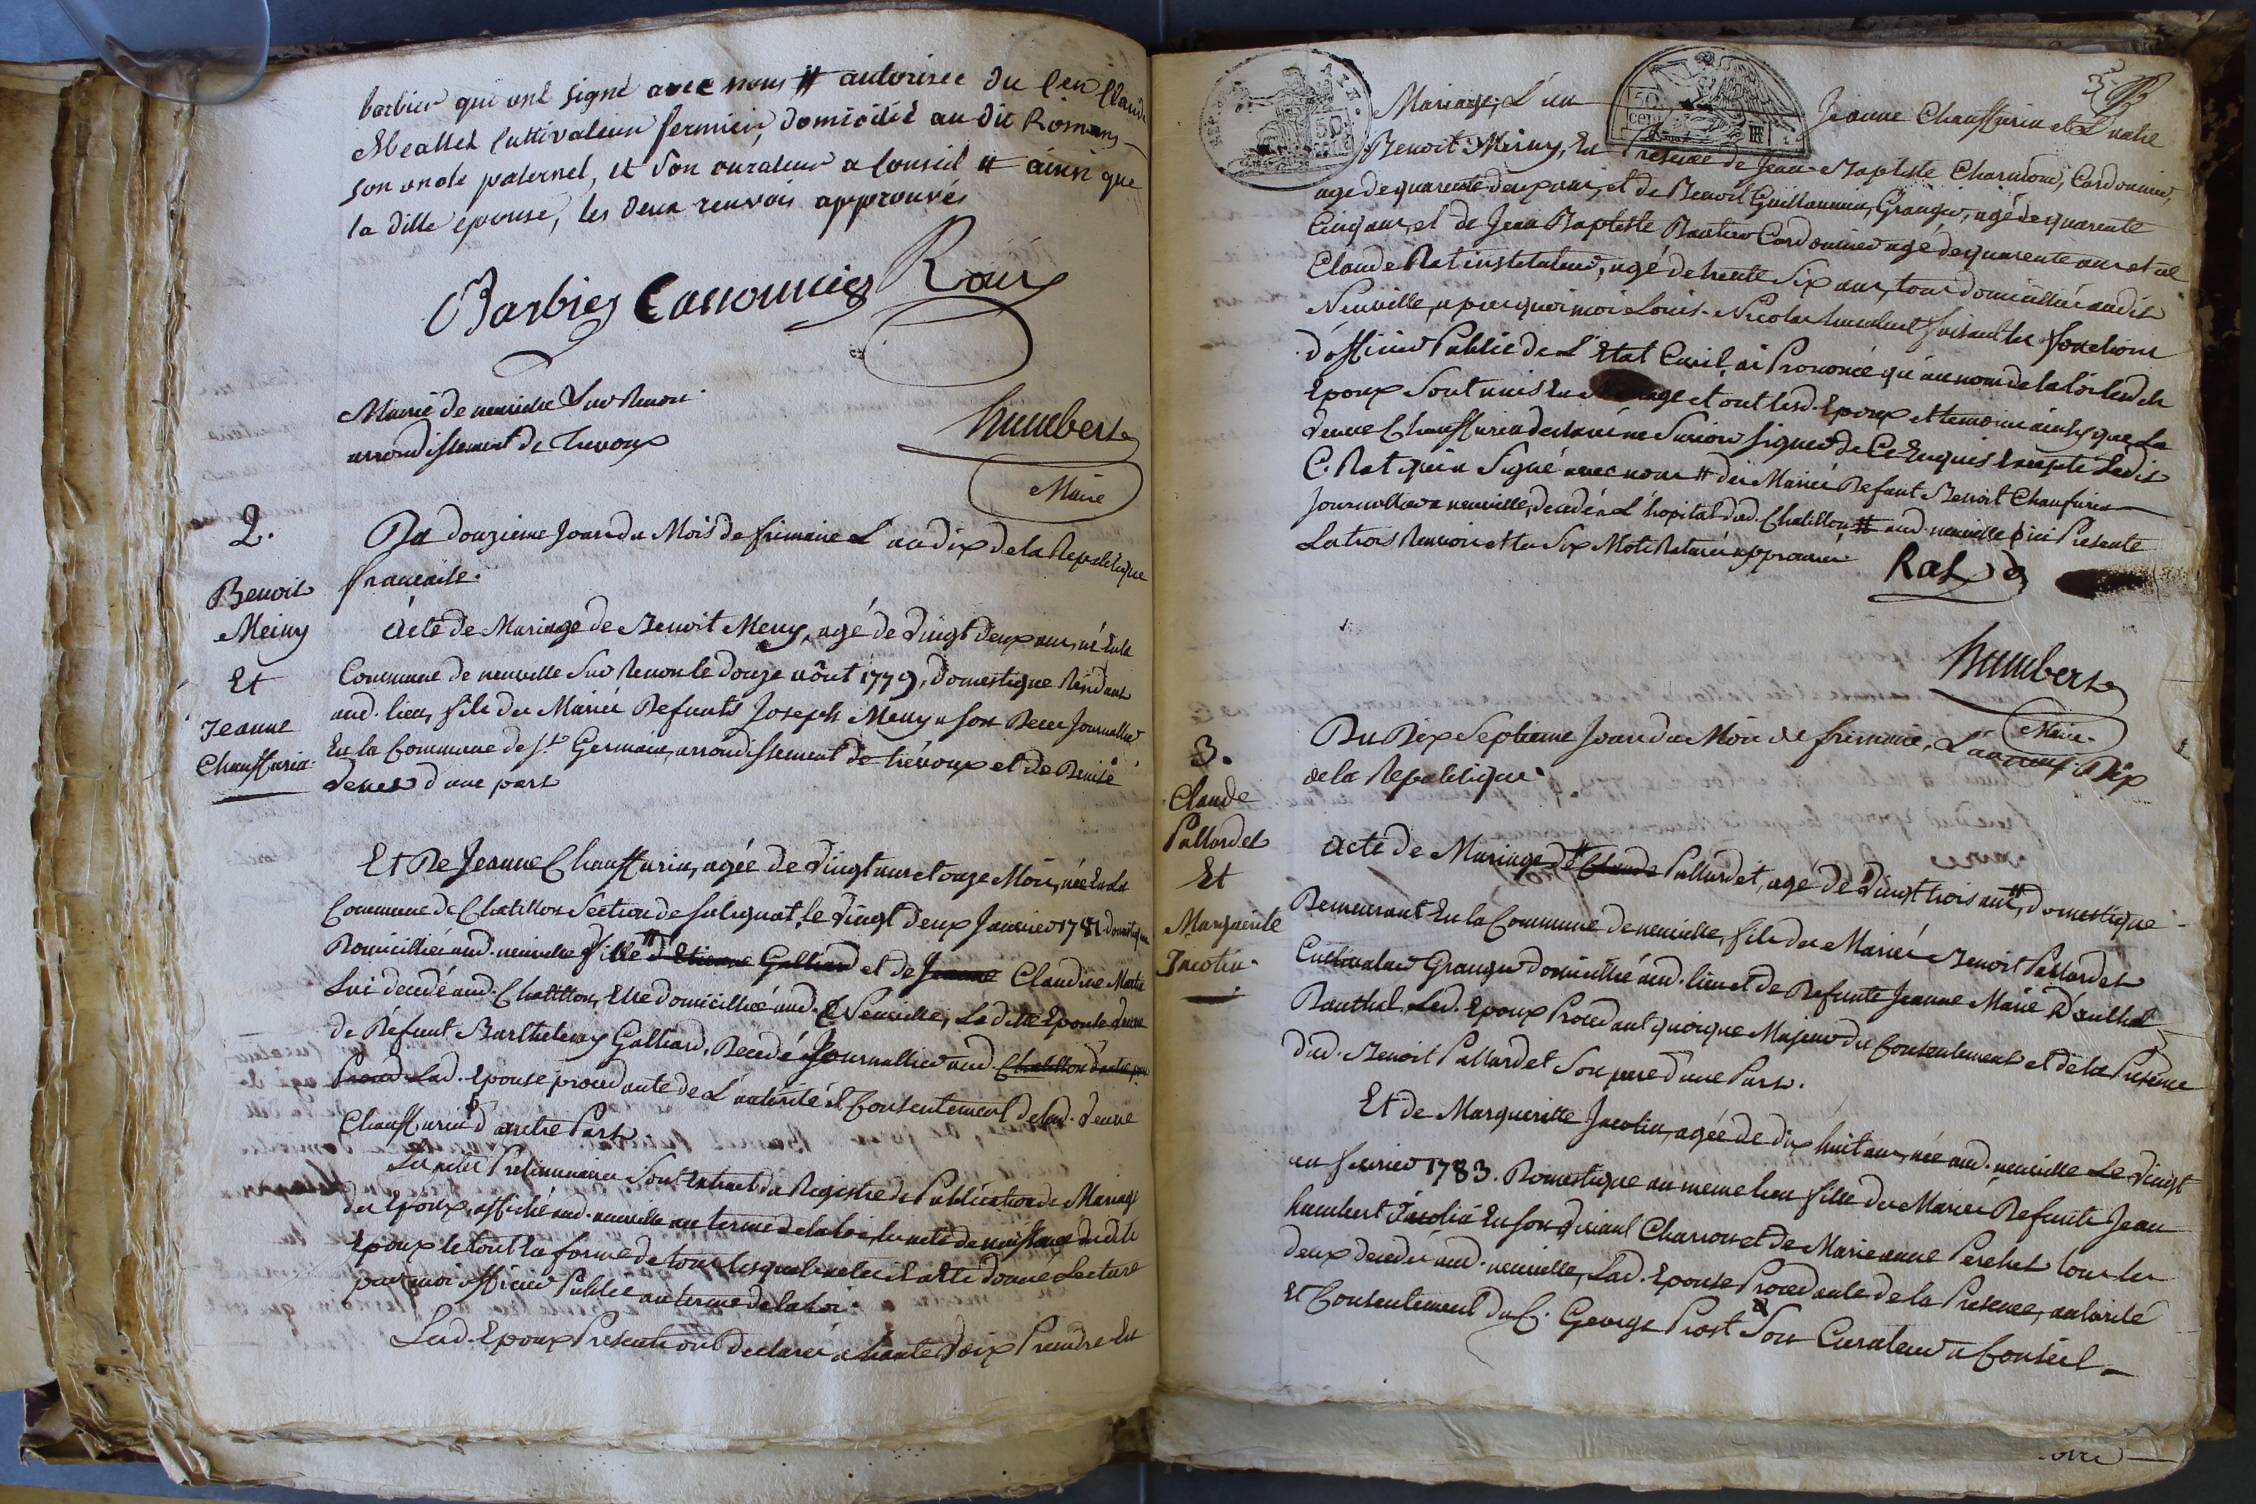 barbier qui ont signé avec nous # autorisée du Cen Claude
Meallet Cultivateur fermier, domicilié au dit Romans
son oncle paternel, et son curateur a Conseil # ainsi que
la ditte epouse, les deux renvois approuvés
Barbier Canonnier
Humbert
Maire
Mairie de neuville sur Renon
arrondissement de Trevoux
2.
Benoit
Meiny
Et
Jeanne
Chauffurin.
Du douzieme Jour du Mois de frimaire L'an dix de la Republique
francaise.
Acte de Mariage de Benoit Meny, agé de vingt deux ans, né En la
Commune de neuville sur Renon le douze août 1779, domestique Résidant
aud. lieu, fils des Mariés Defunts Joseph Meny a son Deces Journallier
En la Commune de St Germain, arrondissement de trévoux et de Benite
d'une part
Et De Jeanne Chauffurin, agée de vingt ans et onze Mois, née En La
Commune de Chatillon Section de fulignat, le vingt deux Janvier 1781 domestique
Domiciliée aud. neuville fille # d'Etienne Galliard et de Jeanne Claudine
Lui decedé aud. Chatillon, Elle domiciliée aud. Neuville, Laditte Epouse veuve
de Défunt Barthelemy Galliard, Decedé Journallier aud. Chatillon d'autre part
Proced Lad. Epouse procedante de L'autorité & Consentement de lad. veuve
Chauffurin d'autre Part
Les actes Preliminaires Sont Extrait du Registre de Publication de Mariage
des Epoux, affiché aud. neuville au terme de la loi, les acte de naissance desdits
Epoux le tout En forme de tous lesquels actes il a été donné Lecture
par moi officier Public au terme de la Loi.
Lesd. Epoux Presents ont declaré a haute voix Prendre En
Mariage, L'un Jeanne Chauffurin et L'autre
Benoit Meiny, En Presence de Jean-Baptiste Charndon, Cordonnier,
agé de quarente deux ans, et de Benoit Guillaumin, Granger, agé de quarente
Cinq ans, et de Jean Baptiste Cordonnier agé de quarente ans et de
Claude Rat instituteur, agé de trente Six ans, tous domiciliés audit
Neuville, apres quoi moi Louis-Nicolas humbert faisant les fonctions
d'officier Public de L'Etat Civil, ai Prononcé qu'au nom de la loi lesdits
Epoux Sont unis En Mariage et ont lesd. Epoux et temoins ainsi que La
veuve Chauffurin declaré ne Savoir Signer de Ce Enquis Excepté Ledit
C. Rat qui a Signé avec nous # des Mariés Defunt Benoit Chaufurin
Journallier a neuville, decedé a L'hopital dud. Chatillon # aud. neuville ici Presente
La trois Renvois et les Six Mots Raturés approuvés
Rat
Humbert
Maire.
3.
Claude
Pallardet
Et
Marguerite
Jacotin.
Du Dix Septieme Jour du Mois de frimaire, L'an neuf Dix
de la Republique.
Acte de Mariage de # Claude Pallardet, agé de vingt trois ans #, domestique
Demeurant En la Commune de neuville, fils des Mariés Benoit Pallardet
Cultivateur Granger domicilié aud. lieu et de Defunte Jeanne Marie Dauthal
Dauthal, Led. Epoux Procedant quoique Majeur du Consentement et de la Presence
dud. Benoit Pallardet Son pere d'une Part.
Et de Marguerite Jacotin, agée de dix huit ans, née aud. neuville Le vingt
un fevrier 1783. Domestique au meme lieu fille des Mariés Defunts Jean
humbert Jacotin En son vivant Charron et de Marieanne Perchet tous les
deux decedés aud. neuville, Lad. Epouse Procedante de la Presence, autorité
Et Consentement du C. George Prost Son Curateur a Conseil